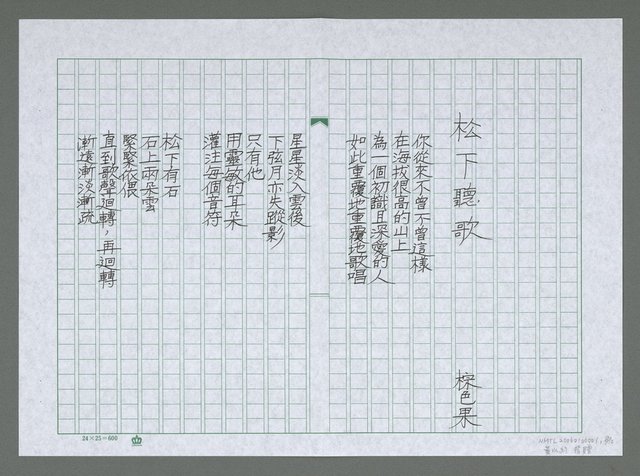 松下聽歌
棕色果
你從來不曾不曾這樣
在海拔很高的山上
為一個初識且深愛的人
如此重覆地重覆地歌唱
星星淡入雲後
下弦月亦失蹤影
只有他
用靈敏的耳朵
灌注每個音符
松下有石
石上兩朵雲
緊緊依偎
直到歌聲迴轉，再迴轉
漸遠漸淡漸疏
24×25=600